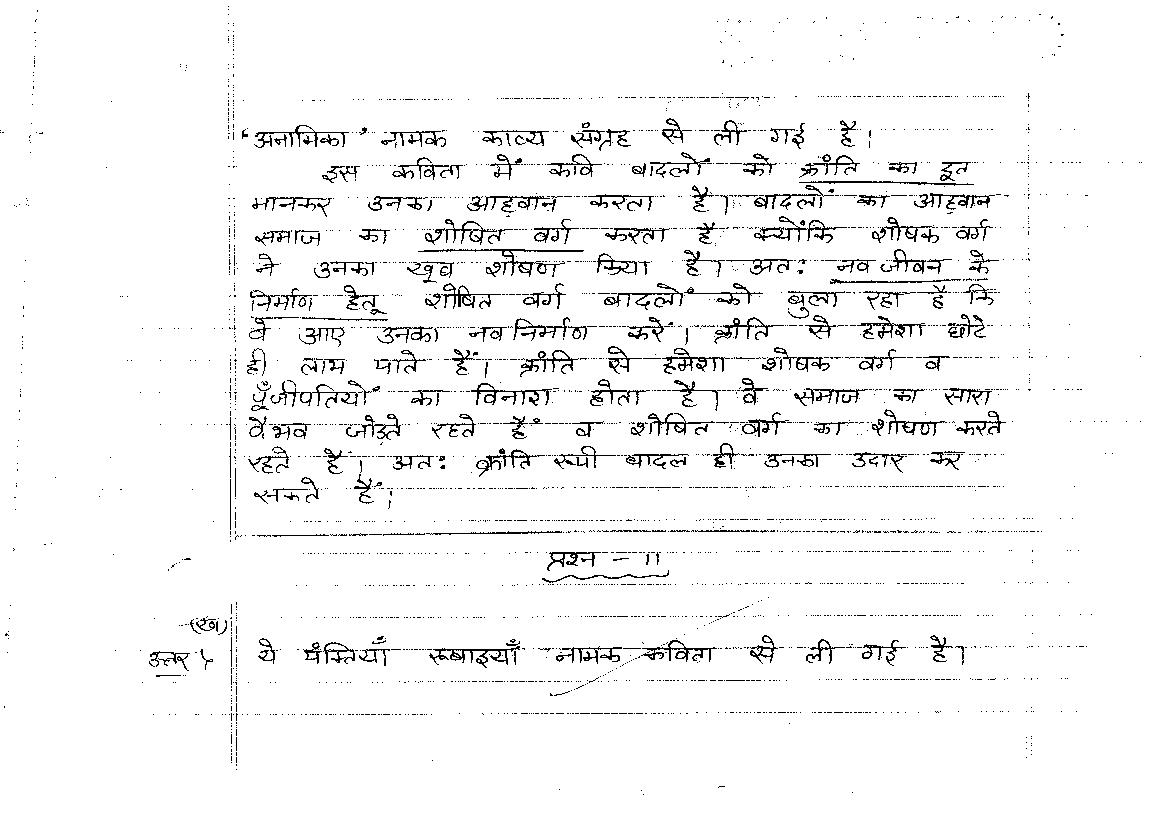 'अनामिका' नामक काव्य संग्रह से ली गई है।
इस कविता में कवि बादलों को क्रांति का दूत
मानकर उनका आह्वान करता है। बादलों का आह्वान
समाज का शोषित वर्ग करता है क्योंकि शोषक वर्ग
ने उनका खूब शोषण किया है। अतः नव जीवन के
निर्माण हेतू शोषित वर्ग बादलों को बुला रहा है कि
वे आए उनका नव निर्माण करें। क्रांति से हमेशा छोटे
ही लाभ पाते हैं। क्रांति से हमेशा शोषक वर्ग व
पूँजीपतियों का विनाश होता है। वे समाज का सारा
वैभव जोड़ते रहते हैं व शोषित वर्ग का शोषण करते
रहते है। अतः क्रांति रूपी बादल ही उनका उदार कर
सकते हैं।
प्रश्न - 11
(ख)
उत्तर ये पंक्तियाँ रूबाइयाँ नामक कविता से ली गई है।